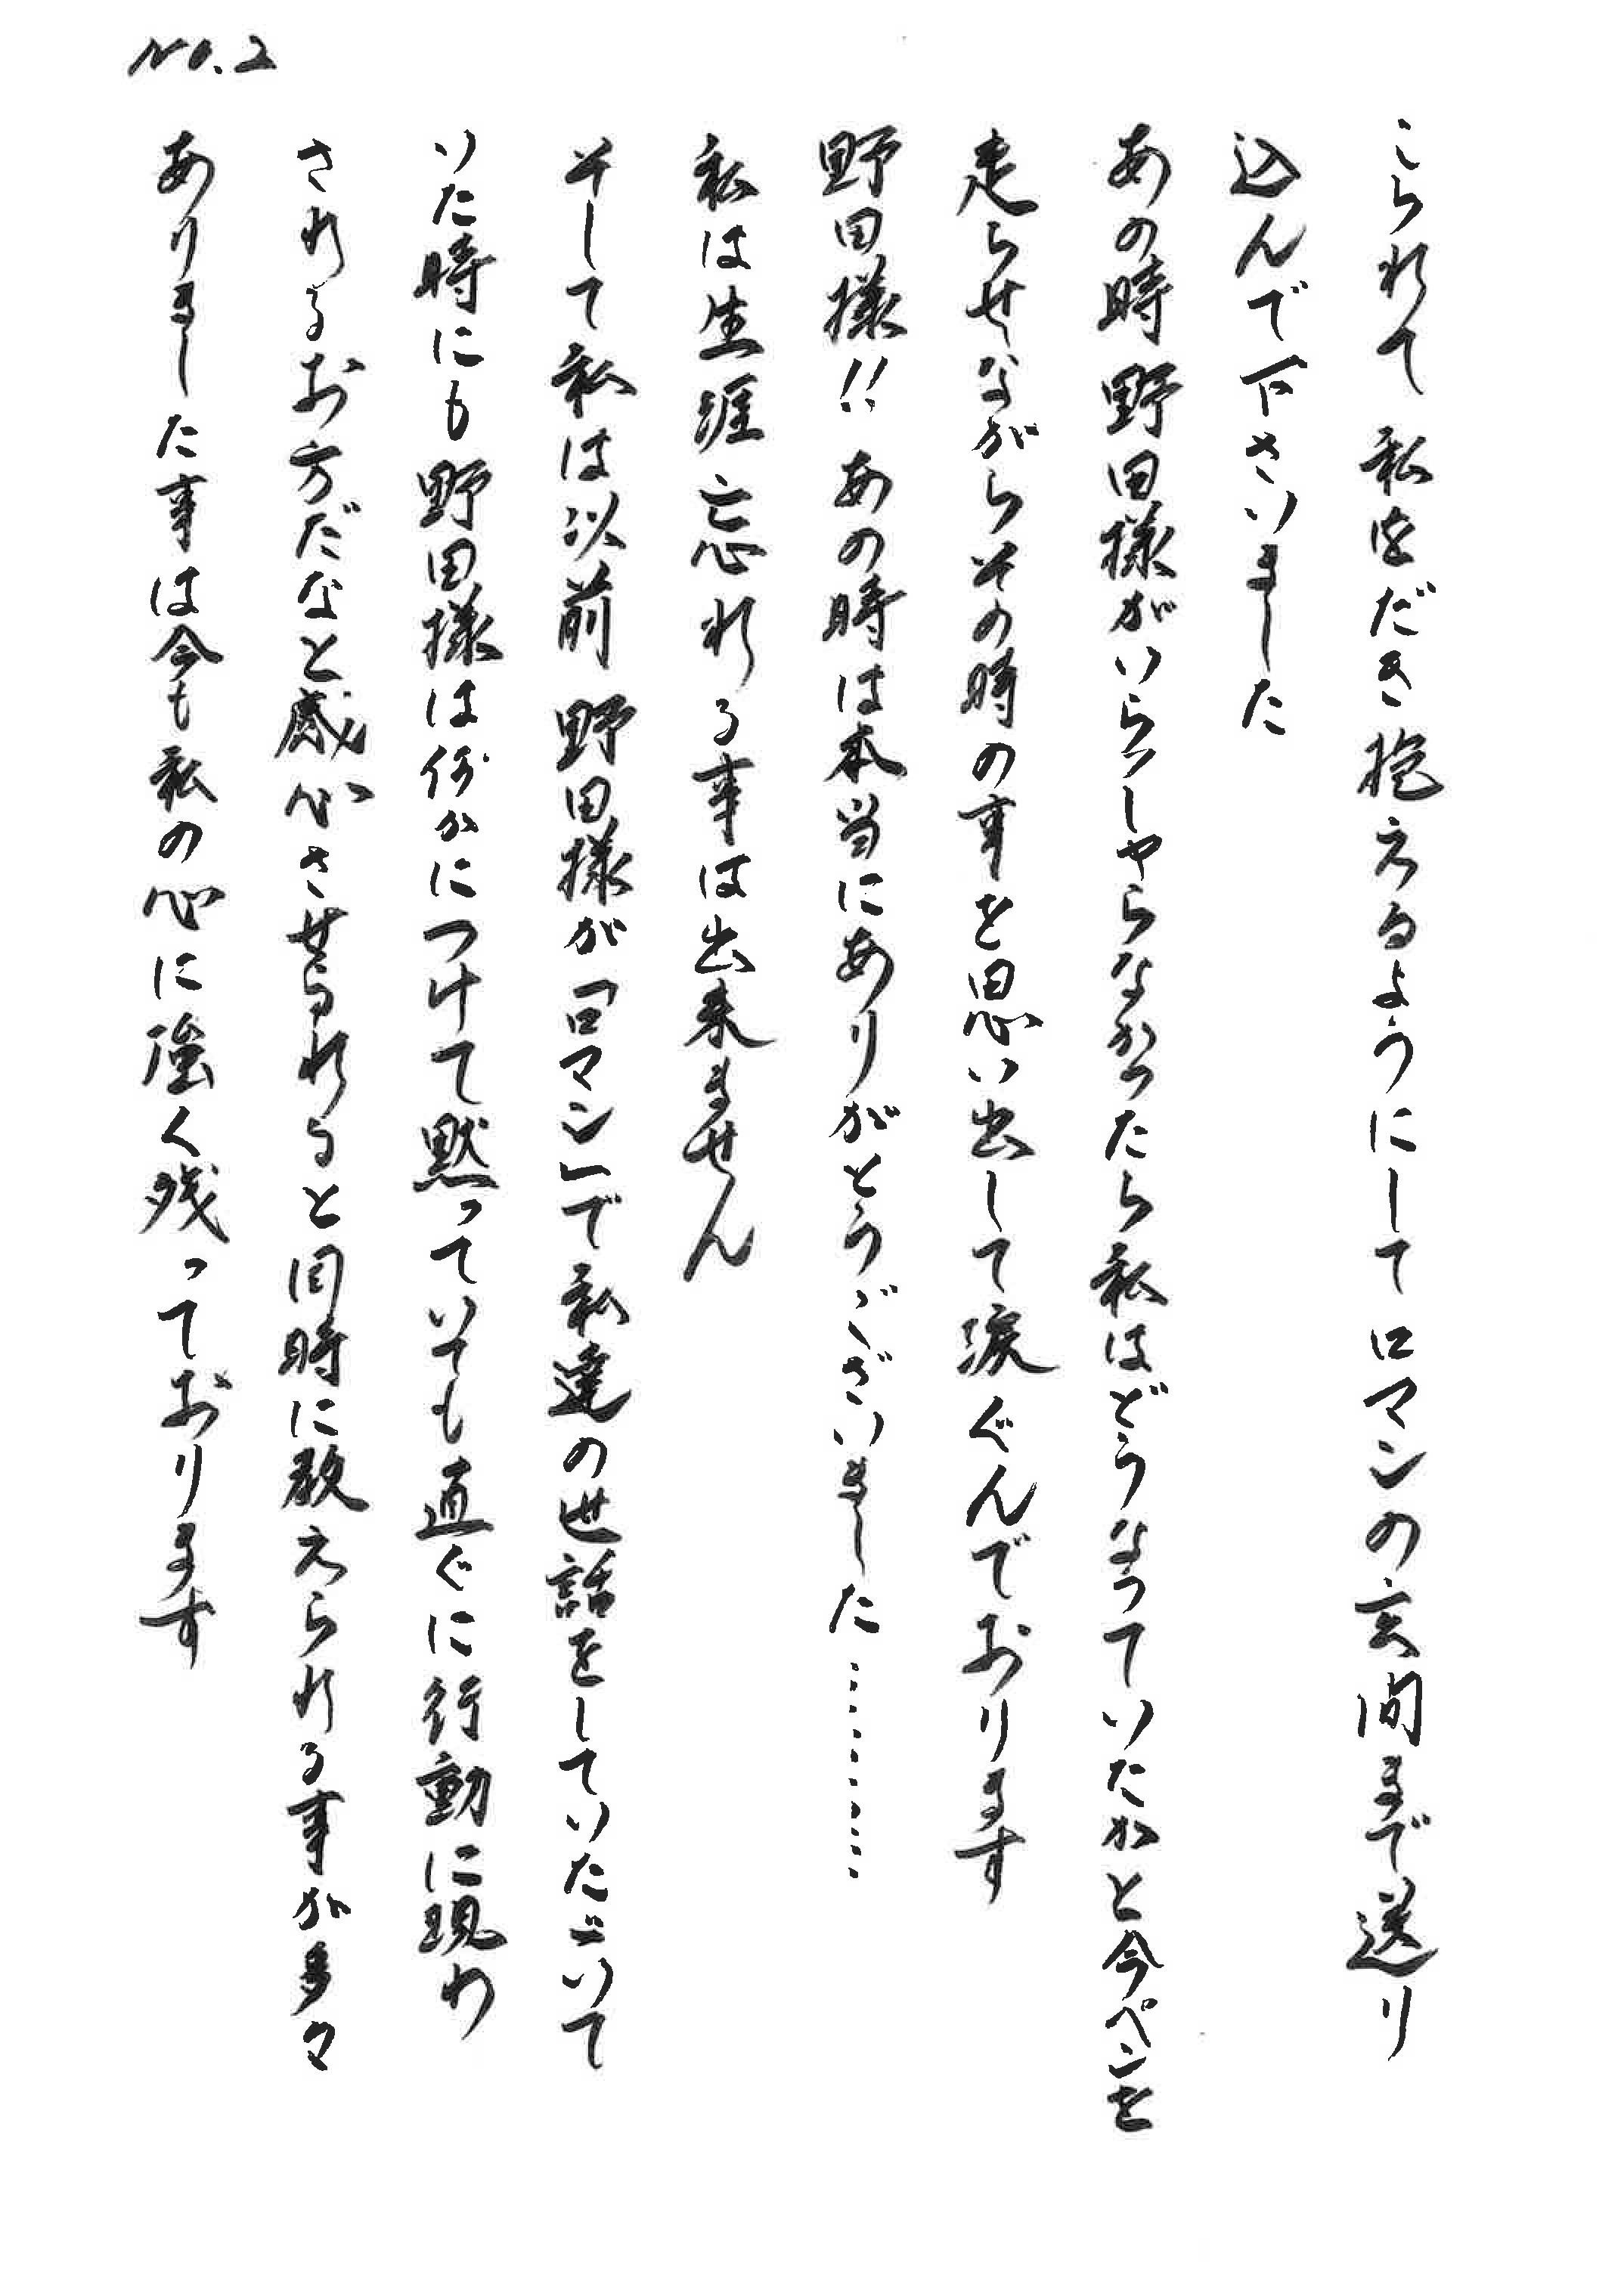 No.2
こられて 私をだき抱えるようにしてロマンの玄関まで送り
込んで下さいました
あの時野田様がいらっしゃらなかったら私はどうなっていたかと今ペンを
走らせながらその時の事を思い出して涙ぐんでおります
野田様!! あの時は本当にありがとうございました…………
私は生涯忘れる事は出来ません
そして私は以前 野田様が「ロマン」で私達の世話をしていたゞいて
いた時にも 野田様は何かにつけて黙っていても直ぐに行動に現わ
されるお方だなと感心させられると同時に教えられる事が多々
ありました事は今も私の心に強く残っております